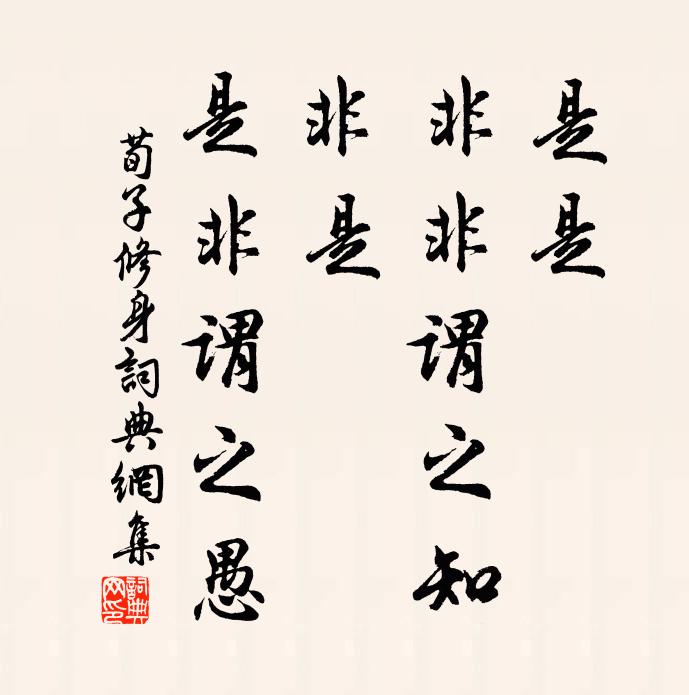 是是
非非謂之知
非是
是非謂之愚
荀子修身詞典網集
詞典网印